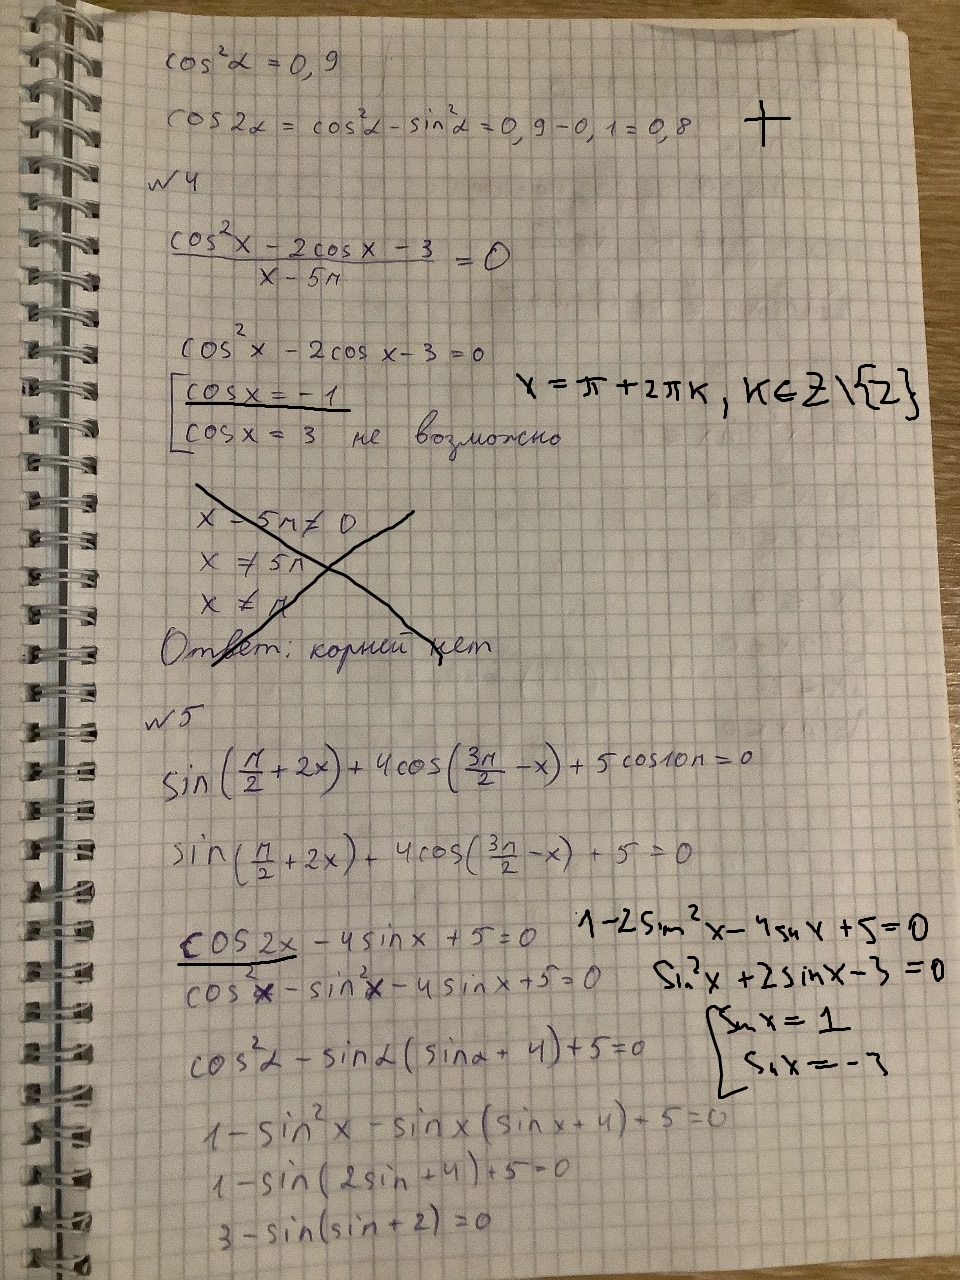 cos²α = 0,9
cos2α = cos²α - sin²α = 0,9 - 0,1 = 0,8 +
№4
(cos²x - 2cosx - 3)/(x - 5π) = 0
cos²x - 2cosx - 3 = 0
[cosx = -1 x = π + 2πk, k∈Z\{2}
[cosx = 3 не возможно
x - 5π ≠ 0
x ≠ 5π
x ≠ π
Ответ: корней нет
№5
sin(π/2 + 2x) + 4cos(3π/2 - x) + 5cos10π = 0
sin(π/2 + 2x) + 4cos(3π/2 - x) + 5 = 0
cos2x - 4sinx + 5 = 0 1 - 2sin²x - 4sinx + 5 = 0
cos²x - sin²x - 4sinx + 5 = 0 sin²x + 2sinx - 3 = 0
[sinx = 1
cos²α - sinα(sinα + 4) + 5 = 0 sinx = -3
1 - sin²x - sinx(sinx + 4) + 5 = 0
1 - sin(2sin + 4) + 5 = 0
3 - sin(sin + 2) = 0